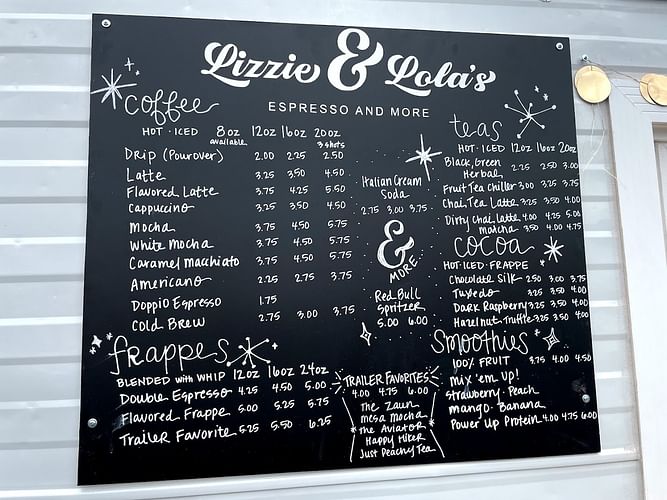 Lizzie & Lola's
ESPRESSO AND MORE
coffee
HOT · ICED 8oz 12oz 16oz 20oz
available 3 shots
Drip (Pourover) 2.00 2.25 2.50
Latte 3.25 3.50 4.50
Flavored Latte 3.75 4.25 5.50
Cappuccino 3.25 3.50 4.50
Mocha 3.75 4.50 5.75
White Mocha 3.75 4.50 5.75
Caramel Macchiato 3.75 4.50 5.75
Americano 2.25 2.75 3.75
Doppio Espresso 1.75
Cold Brew 2.75 3.00 3.75
frappes 12oz 16oz 24oz
BLENDED with WHIP
Double Espresso 4.25 4.50 5.00
Flavored Frappe 5.00 5.25 5.75
Trailer Favorite 5.25 5.50 6.25
Italian Cream
Soda
2.75 3.00 3.75
&
MORE
Red Bull
Spritzer
5.00 6.00
TRAILER FAVORITES
4.00 4.75 6.00
The Zaun
Mesa Mocha
The Aviator
Happy Hiker
Just Peachy Tea
teas
HOT · ICED 12oz 16oz 20oz
Black, Green
Herbal 2.25 2.50 3.00
Fruit Tea Chiller 3.00 3.25 3.75
Chai Tea Latte 3.25 3.50 4.00
Dirty Chai Latte 4.00 4.25 5.00
matcha 3.50 4.00 4.75
cocoa
HOT · ICED · FRAPPE
Chocolate Silk 2.50 3.00 3.75
Tuxedo 3.25 3.50 4.00
Dark Raspberry 3.25 3.50 4.00
Hazelnut Truffle 3.25 3.50 4.00
Smoothies
100% FRUIT 3.75 4.00 4.50
Mix 'em up!
Strawberry · Peach
mango · Banana
Power Up Protein 4.00 4.75 6.00